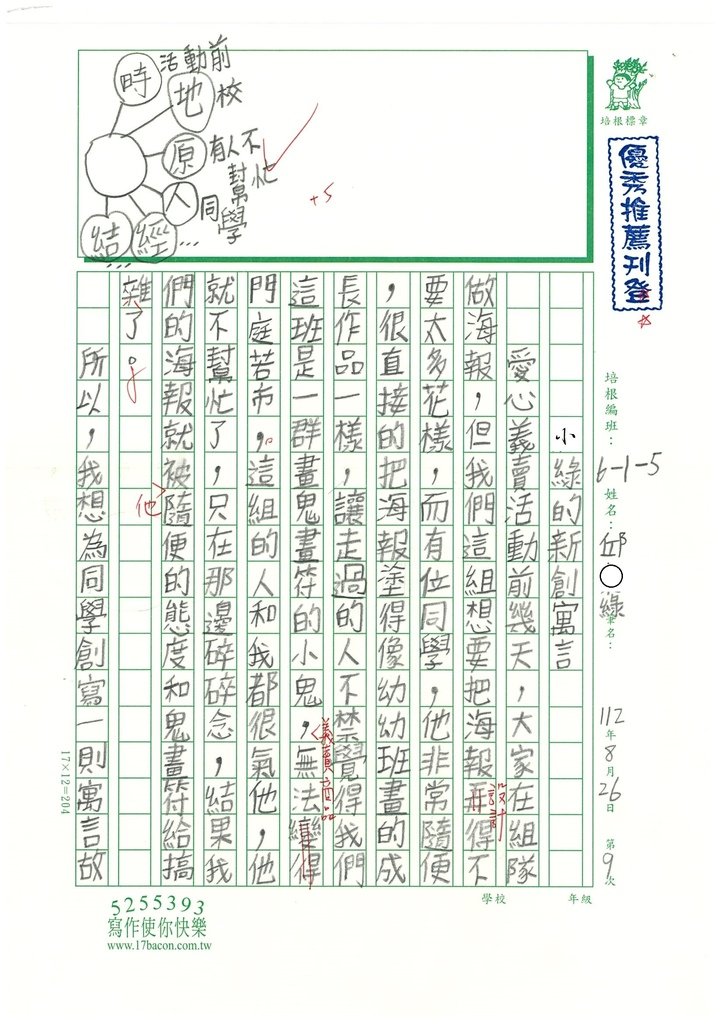 培根標章
優秀推薦刊登
培根編班：6-1-5 姓名：邱○綠 筆名：
112年8月26日 第9次
時 活動前
地 校
原 有人不幫忙
人 同學
經...
結...
+5
小綠的新創寓言
愛心義賣活動前幾天，大家在組隊
做海報，但我們這組想要把海報得不
設計
要太多花樣，而有位同學，他非常隨便
，很直接的把海報塗得像幼幼班畫的成
長作品一樣，讓走過的人不禁覺得我們
這班是一群畫鬼畫符的小鬼，無法變得
義賣商品
門庭若市。這組的人和我都很氣他，他
就不幫忙了，只在那邊碎碎念，結果我
們的海報就被隨便的態度和鬼畫符給搞
他
雜了。
所以，我想為同學創寫一則寓言故
17×12=204
學校 年級
5255393
寫作使你快樂
www.17bacon.com.tw